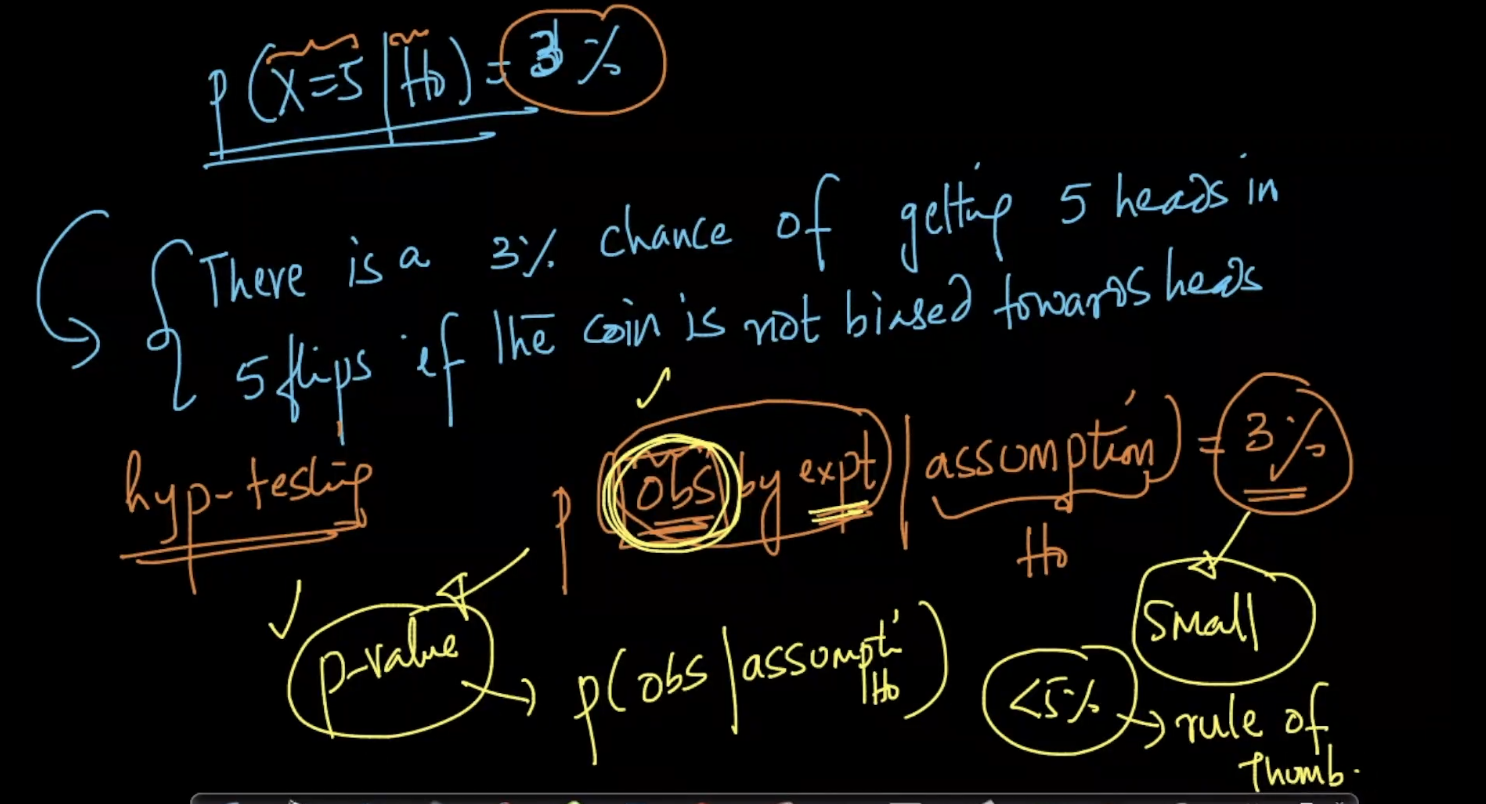 P(X=5|H0) = 3%
There is a 3% chance of getting 5 heads in
5 flips if the coin is not biased towards heads
hyp-testing
P(obs by expt | assumption) = 3%
H0
small
p-value → P(obs | assumptn H0)
<5% → rule of
Thumb.